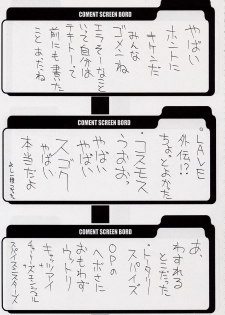 COMENT SCREEN BORD
やばい
ホントに
サケンだ
みんな
ゴメンね
エラそーなこと
いって自分は
テキトーって
前にも書いた
ことあたね
COMENT SCREEN BORD
・LAVE
外伝!?
ちょっとよかた
・コスモス
うおお、
やばい
やばい
スゴク
本当だよ
COMENT SCREEN BORD
あ、
わすれる
とこだった
・トータリー
スパイズ
OPの
ヘボさに
おもわず
ウットリ
キャッツアイ
チャーリーズエンジェル
スパイスニスターズ